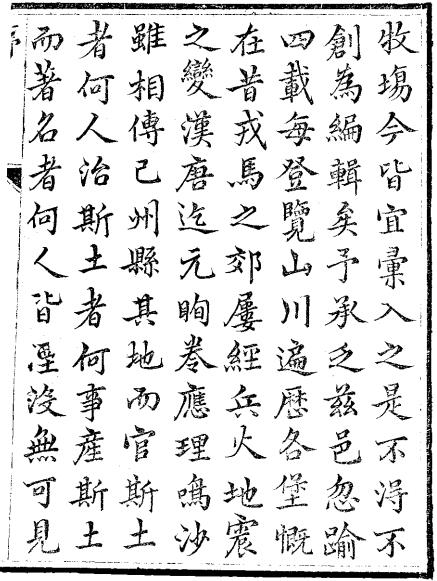 牧塲今皆宜彚入之是不淂不
創為編輯矣予承乏兹邑忽踰
四載每登覽山川遍歴各堡慨
在昔戎馬之郊屢經兵火地震
之變漢唐迄元眴卷應理鳴沙
雖相傳己州縣其地而官斯土
者何人治斯土者何事産斯土
而著名者何人皆湮沒無可見